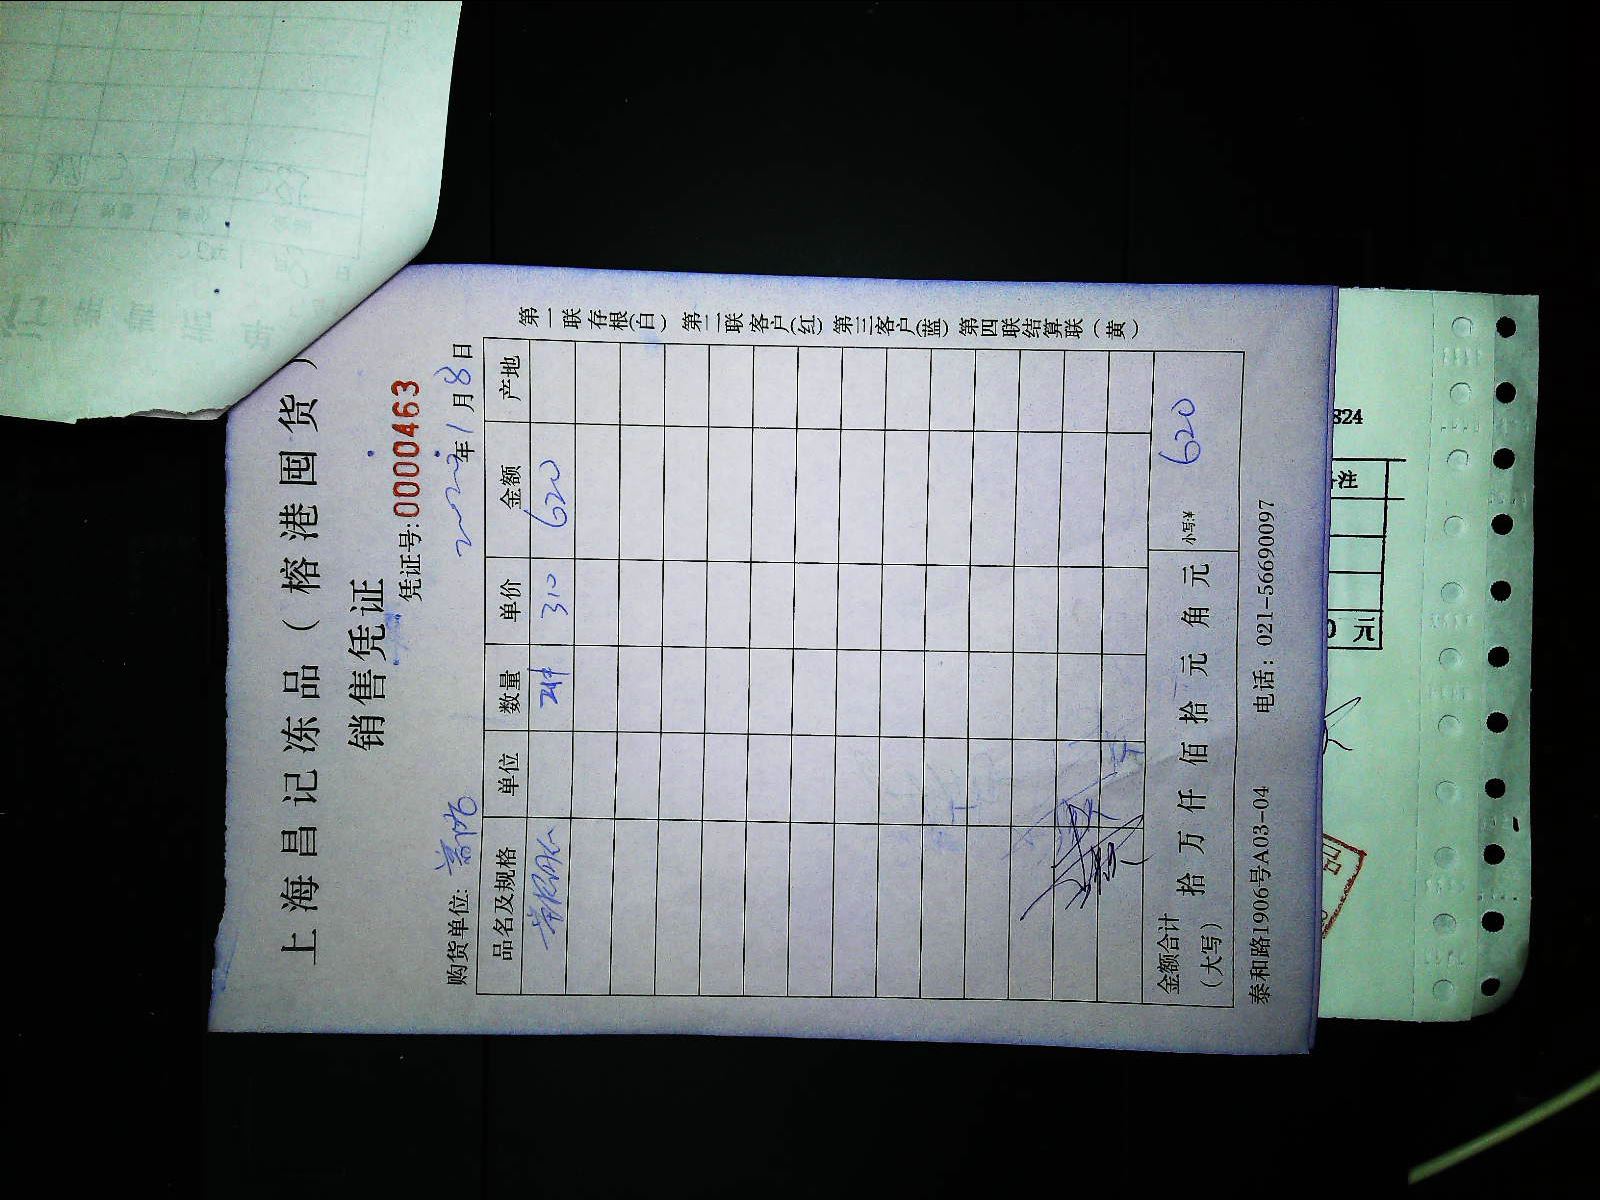 上海昌记冻品（榕港囤货）
销售凭证
凭证号:0000463
购货单位: 2022年1月8日
品名及规格 单位 数量 单价 金额 产地
2件 310 620
金额合计（大写） 拾 万 仟 佰 拾 元 角 元 小写:¥ 620
泰和路1906号A03-04 电话: 021-56690097
第一联存根(白) 第二联客户(红) 第三客户(蓝) 第四联结算联(黄)
824